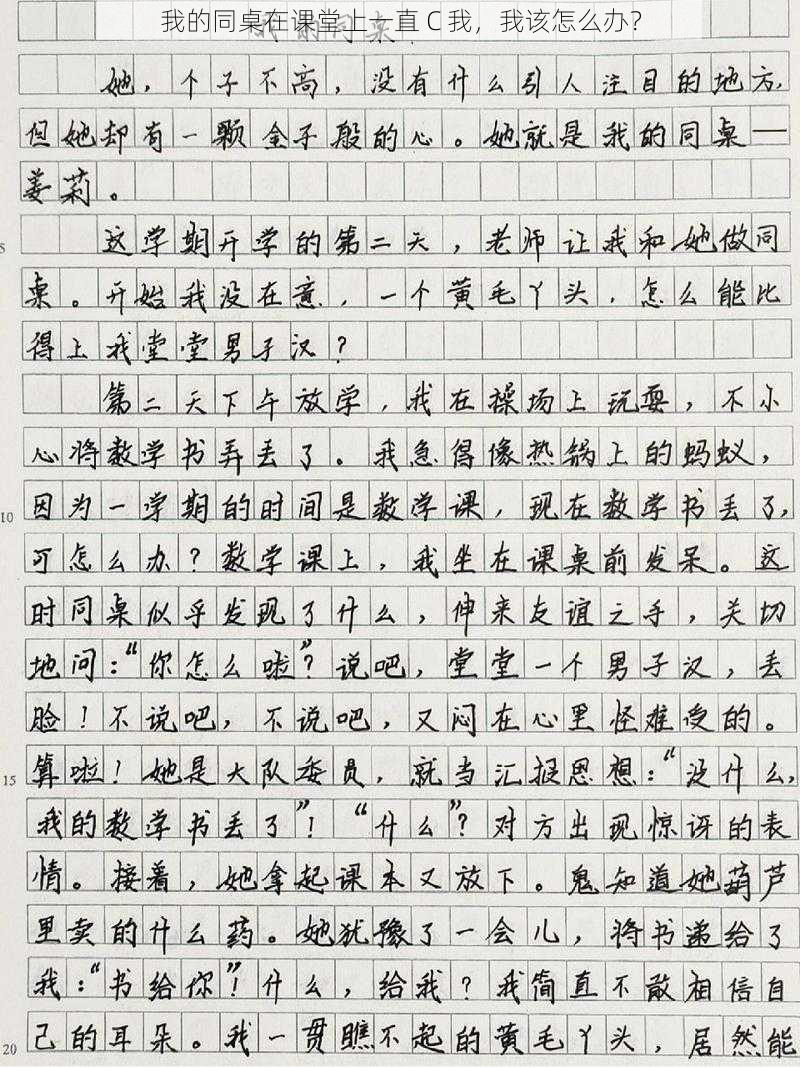 我的同桌在课堂上一直C我，我该怎么办？
我的同桌
她，个子不高，没有什么引人注目的地方，
但她却有一颗金子般的心。她就是我的同桌——
姜莉。
5 这学期开学的第二天，老师让我和她做同
桌。开始我没在意，一个黄毛丫头，怎么能比
得上我堂堂男子汉？
第二天下午放学，我在操场上玩耍，不小
心将数学书弄丢了。我急得像热锅上的蚂蚁，
10 因为一学期的时间是数学课，现在数学书丢了，
可怎么办？数学课上，我坐在课桌前发呆。这
时同桌似乎发现了什么，伸来友谊之手，关切
地问：“你怎么啦”？说吧，堂堂一个男子汉，丢
脸！不说吧，不说吧，又闷在心里怪难受的。
15 算啦！她是大队委员，就当汇报思想：“没什么，
我的数学书丢了”！“什么”？对方出现惊讶的表
情。接着，她拿起课本又放下。鬼知道她葫芦
里卖的什么药。她犹豫了一会儿，将书递给了
我：“书给你”！什么，给我？我简直不敢相信自
20 己的耳朵。我一贯瞧不起的黄毛丫头，居然能